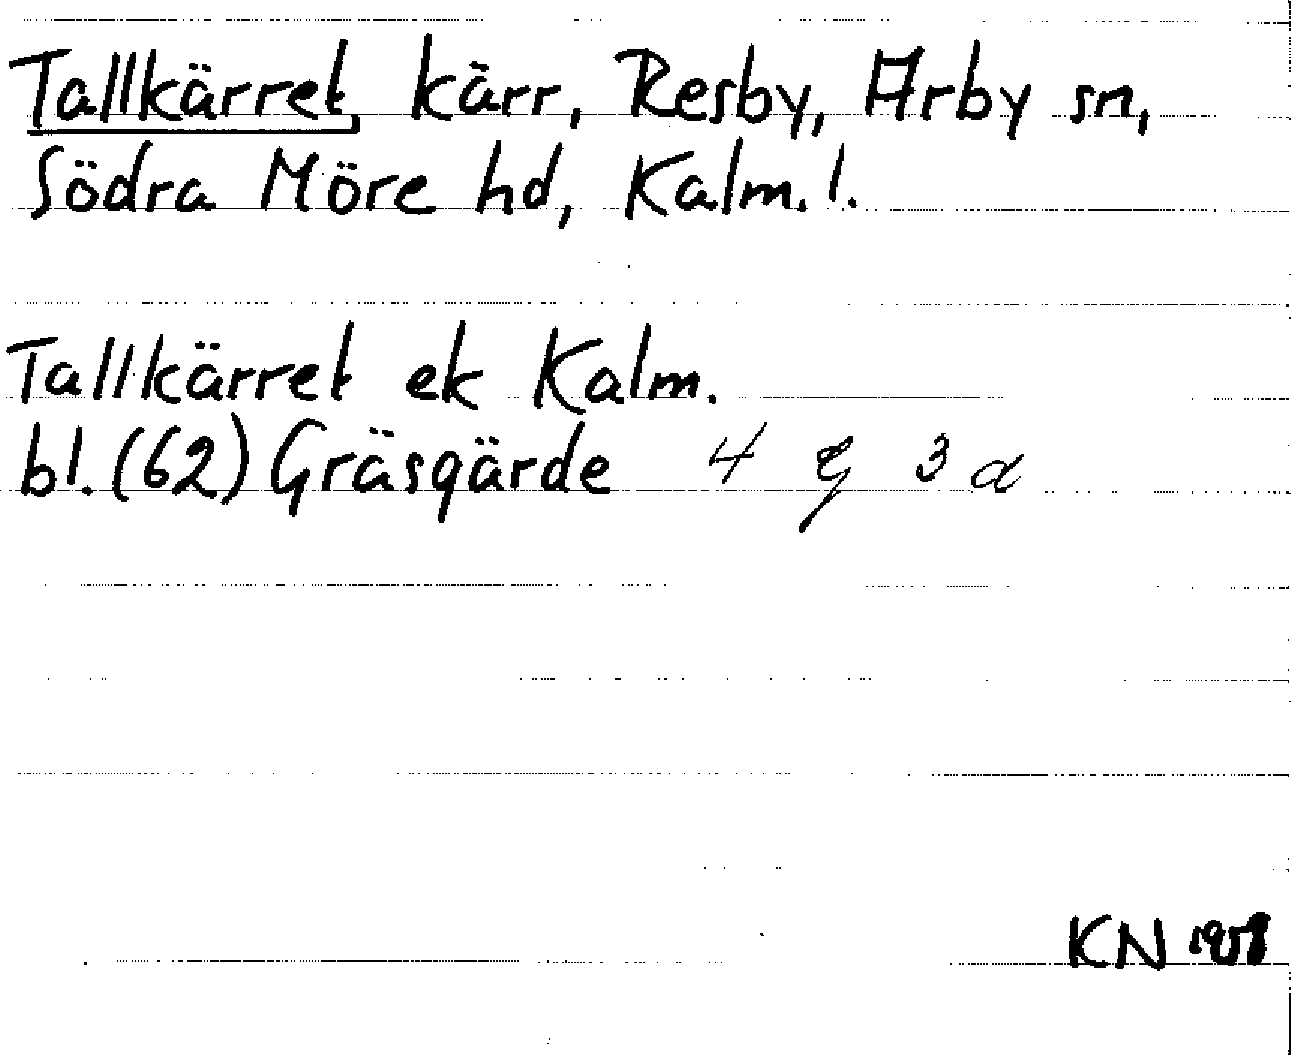 Tallkärret, kärr, Resby, Arby sn,
Södra Möre hd, Kalm. l.
Tallkärret ek Kalm.
bl. (62) Gräsgärde 4 g 3 d
KN